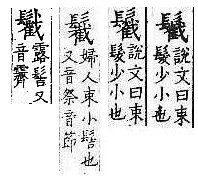 說文曰束
髮少小也
說文曰束
髮少小也
婦人束小髻也
又音祭音節
露髻又
音霽